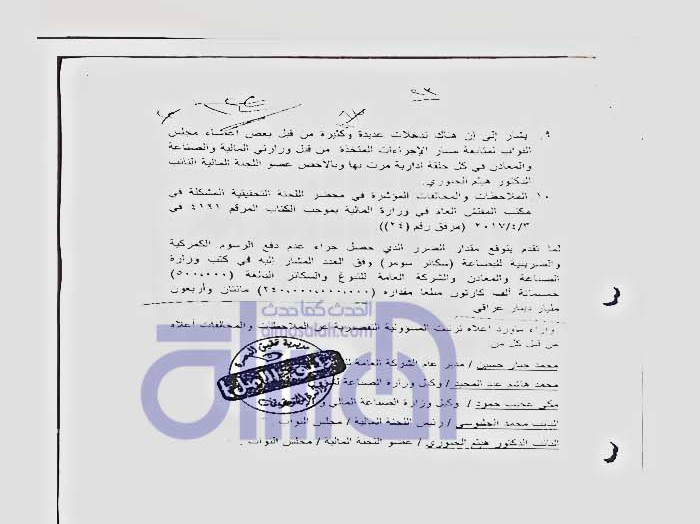 ٩. يشار إلى أن هناك تدخلات عديدة وكثيرة من قبل بعض أعضاء مجلس
النواب لمتابعة مسار الإجراءات المتخذة من قبل وزارتي المالية والصناعة
والمعادن في كل حلقة ادارية مرت بها وبالاخص عضو اللجنة المالية النائب
الدكتور هيثم الجبوري.
١٠. الملاحظات والمخالفات المؤشرة في محضر اللجنة التحقيقية المشكلة في
مكتب المفتش العام في وزارة المالية بموجب الكتاب المرقم ٤١٩١ في
٢٠١٧/٤/٣ (مرفق رقم (٢٤))
لما تقدم يتوقع مقدار الضرر الذي حصل جراء عدم دفع الرسوم الكمركية
والضريبية للبضاعة (سكائر سومر) وفق العدد المشار اليه في كتب وزارة
الصناعة والمعادن والشركة العامة للتبوغ والسكائر البالغة (٥٠٠,٠٠٠)
خمسمائة ألف كارتون مبلغا مقداره (٢٤٠,٠٠٠,٠٠٠,٠٠٠) مائتان وأربعون
مليار دينار عراقي
الحدث كما حدث
almasalah.com
وازاء ماورد اعلاه ترتبت المسؤولية التقصيرية عن الملاحظات والمخالفات أعلاه
من قبل كل من
محمد جبار حسين / مدير عام الشركة العامة
محمد هاشم عبد المجيد / وكيل وزارة الصناعة
مكي عجيب حمود / وكيل وزارة الصناعة المالي
النائب محمد الحلبوسي / رئيس اللجنة المالية / مجلس النواب.
النائب الدكتور هيثم الجبوري / عضو اللجنة المالية / مجلس النواب.